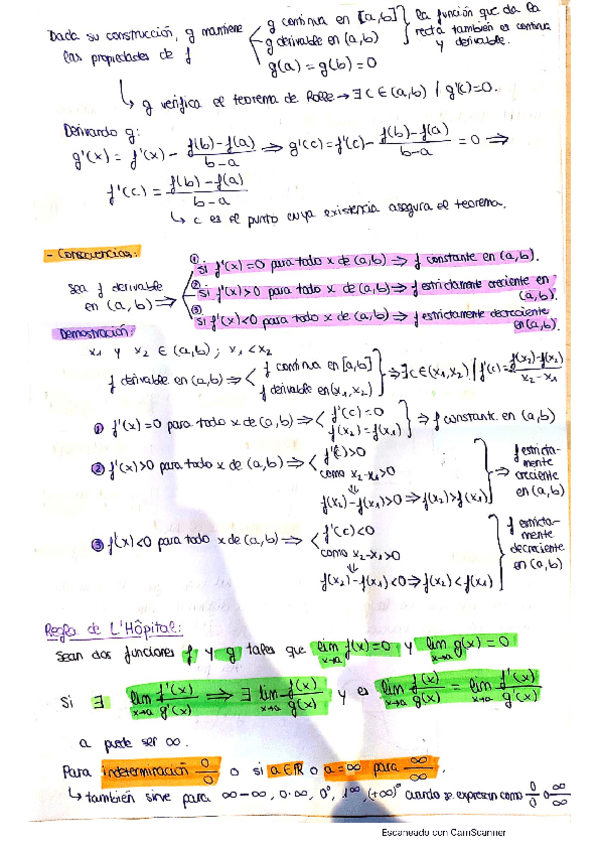 Dada su construcción, g mantiene las propiedades de f < g continua en [a,b] g derivable en (a,b) } la función que da la recta también es continua y derivable.
g(a) = g(b) = 0
↳ g verifica el teorema de Rolle → ∃ c ∈ (a,b) / g'(c)=0.
Derivando g:
g'(x) = f'(x) - (f(b)-f(a))/(b-a) ⇒ g'(c) = f'(c) - (f(b)-f(a))/(b-a) = 0 ⇒
f'(c) = (f(b)-f(a))/(b-a)
↳ c es el punto cuya existencia asegura el teorema.
- Consecuencias:
Sea f derivable en (a,b) ⇒
① Si f'(x)=0 para todo x de (a,b) ⇒ f constante en (a,b).
② Si f'(x)>0 para todo x de (a,b) ⇒ f estrictamente creciente en (a,b).
③ Si f'(x)<0 para todo x de (a,b) ⇒ f estrictamente decreciente en (a,b).
Demostración:
x1 y x2 ∈ (a,b) ; x1 < x2
f derivable en (a,b) ⇒ < f continua en [a,b] f derivable en (x1,x2) } ⇒ ∃ c ∈ (x1,x2) / f'(c) = (f(x2)-f(x1))/(x2-x1)
① f'(x)=0 para todo x de (a,b) ⇒ < f'(c)=0 f(x2)=f(x1) } ⇒ f constante en (a,b)
② f'(x)>0 para todo x de (a,b) ⇒ < f'(c)>0
como x2-x1>0
⇓
f(x2)-f(x1)>0 ⇒ f(x2)>f(x1) } ⇒ f estrictamente creciente en (a,b)
③ f'(x)<0 para todo x de (a,b) ⇒ < f'(c)<0
como x2-x1>0
⇓
f(x2)-f(x1)<0 ⇒ f(x2)<f(x1) } f estrictamente decreciente en (a,b)
Regla de L'Hôpital:
Sean dos funciones f y g tales que lim x→a f(x)=0 y lim x→a g(x)=0
Si ∃ lim x→a f'(x)/g'(x) ⇒ ∃ lim x→a f(x)/g(x) y es lim x→a f(x)/g(x) = lim x→a f'(x)/g'(x)
a puede ser ∞.
Para indeterminación 0/0 o si a ∈ ℝ o a = ∞ para ∞/∞.
↳ también sirve para ∞-∞, 0·∞, 0⁰, 1^∞, (+∞)⁰ cuando se expresan como 0/0 o ∞/∞
Escaneado con CamScanner